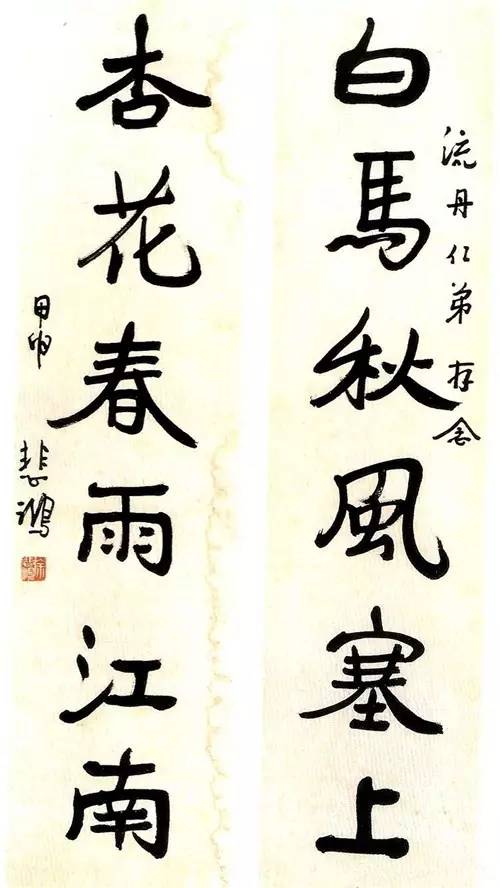 流丹仁弟存念
白馬秋風塞上
杏花春雨江南
甲申 悲鴻